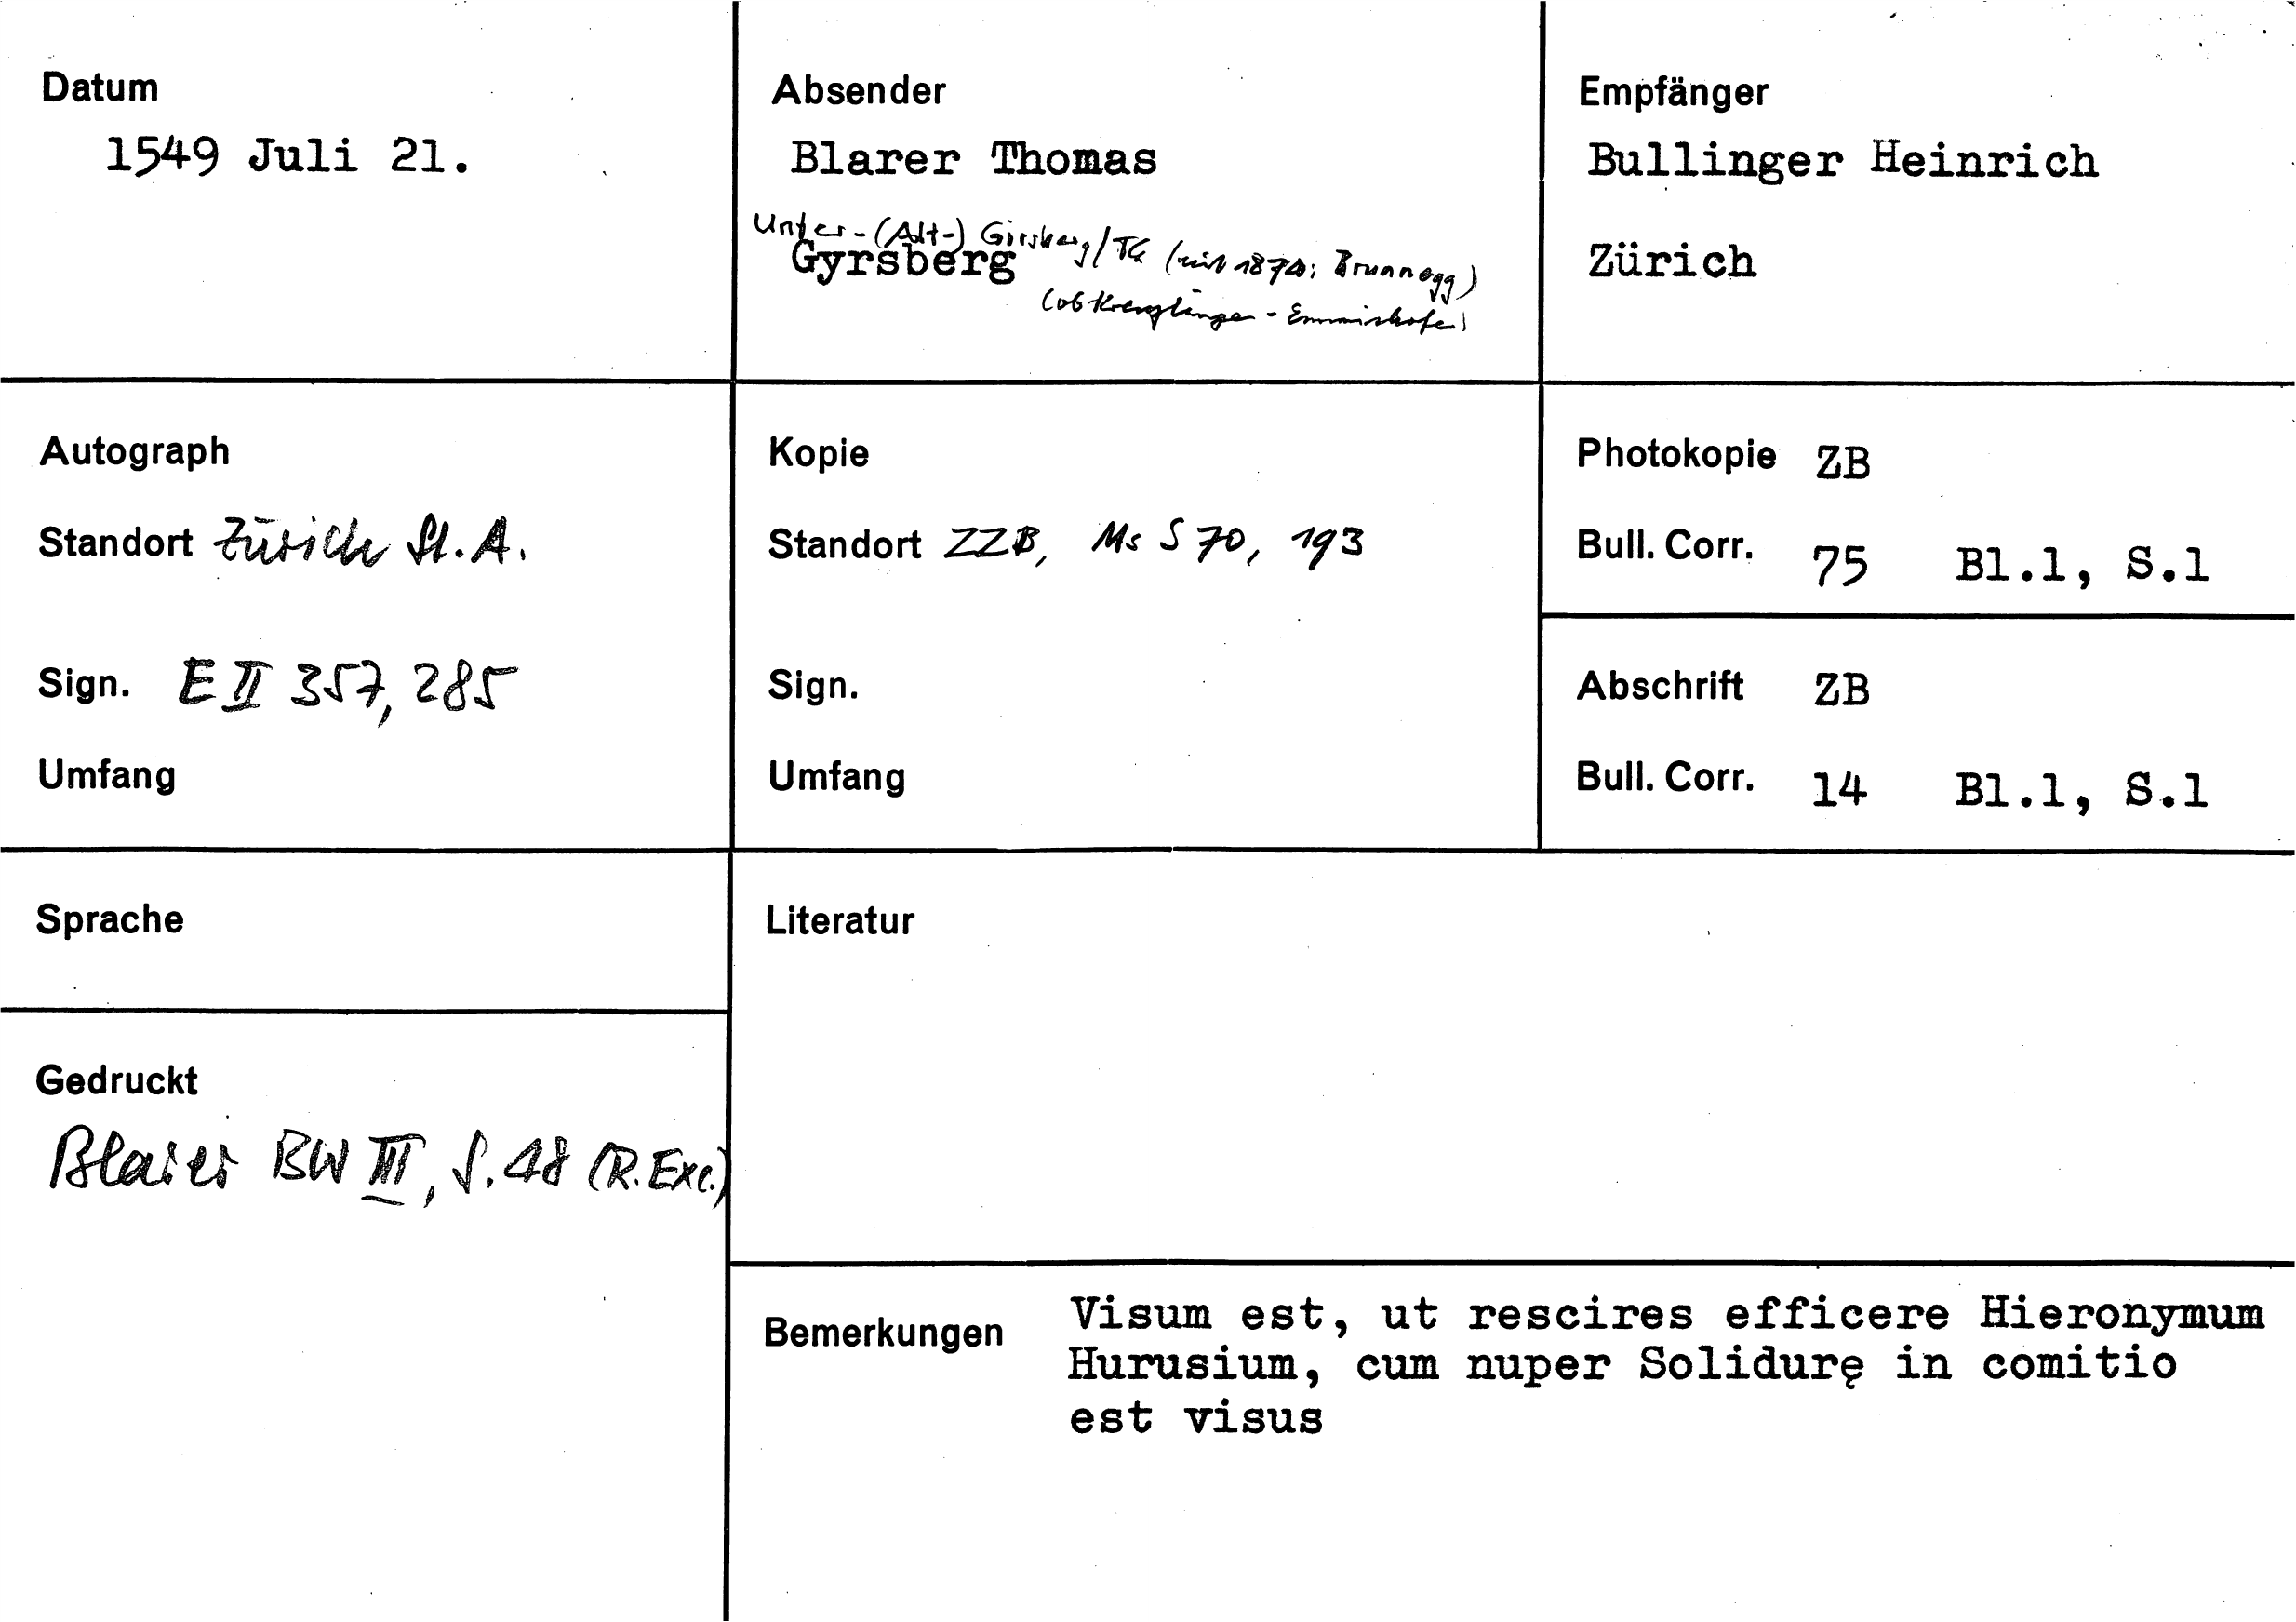 Datum
1549 Juli 21.
Absender
Blarer Thomas
Unter-(Alt-) Girsberg/TG (seit 1874: Brunnegg)
Gyrsberg
(ob Kreuzlingen - Emmishofen)
Empfänger
Bullinger Heinrich
Zürich
Autograph
Standort Zürich St. A.
Sign. E II 357, 285
Umfang
Kopie
Standort ZZB, Ms S 70, 193
Sign.
Umfang
Photokopie ZB
Bull. Corr. 75 Bl.1, S.1
Abschrift ZB
Bull. Corr. 14 Bl.1, S.1
Sprache
Literatur
Gedruckt
Blarer BW III, S. 48 (R. Exc.)
Bemerkungen
Visum est, ut rescires efficere Hieronymum
Hurusium, cum nuper Solidurę in comitio
est visus